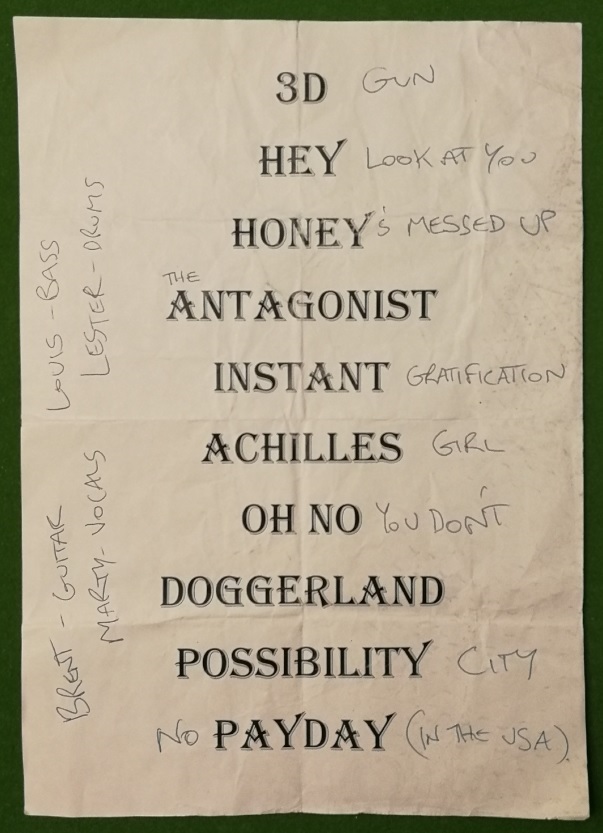 3D GUN
HEY LOOK AT YOU
HONEY's MESSED UP
THE
ANTAGONIST
INSTANT GRATIFICATION
ACHILLES GIRL
OH NO YOU DON'T
DOGGERLAND
POSSIBILITY CITY
NO PAYDAY (IN THE USA)
LOUIS - BASS
LESTER - DRUMS
BRENT - GUITAR
MARTY - VOCALS